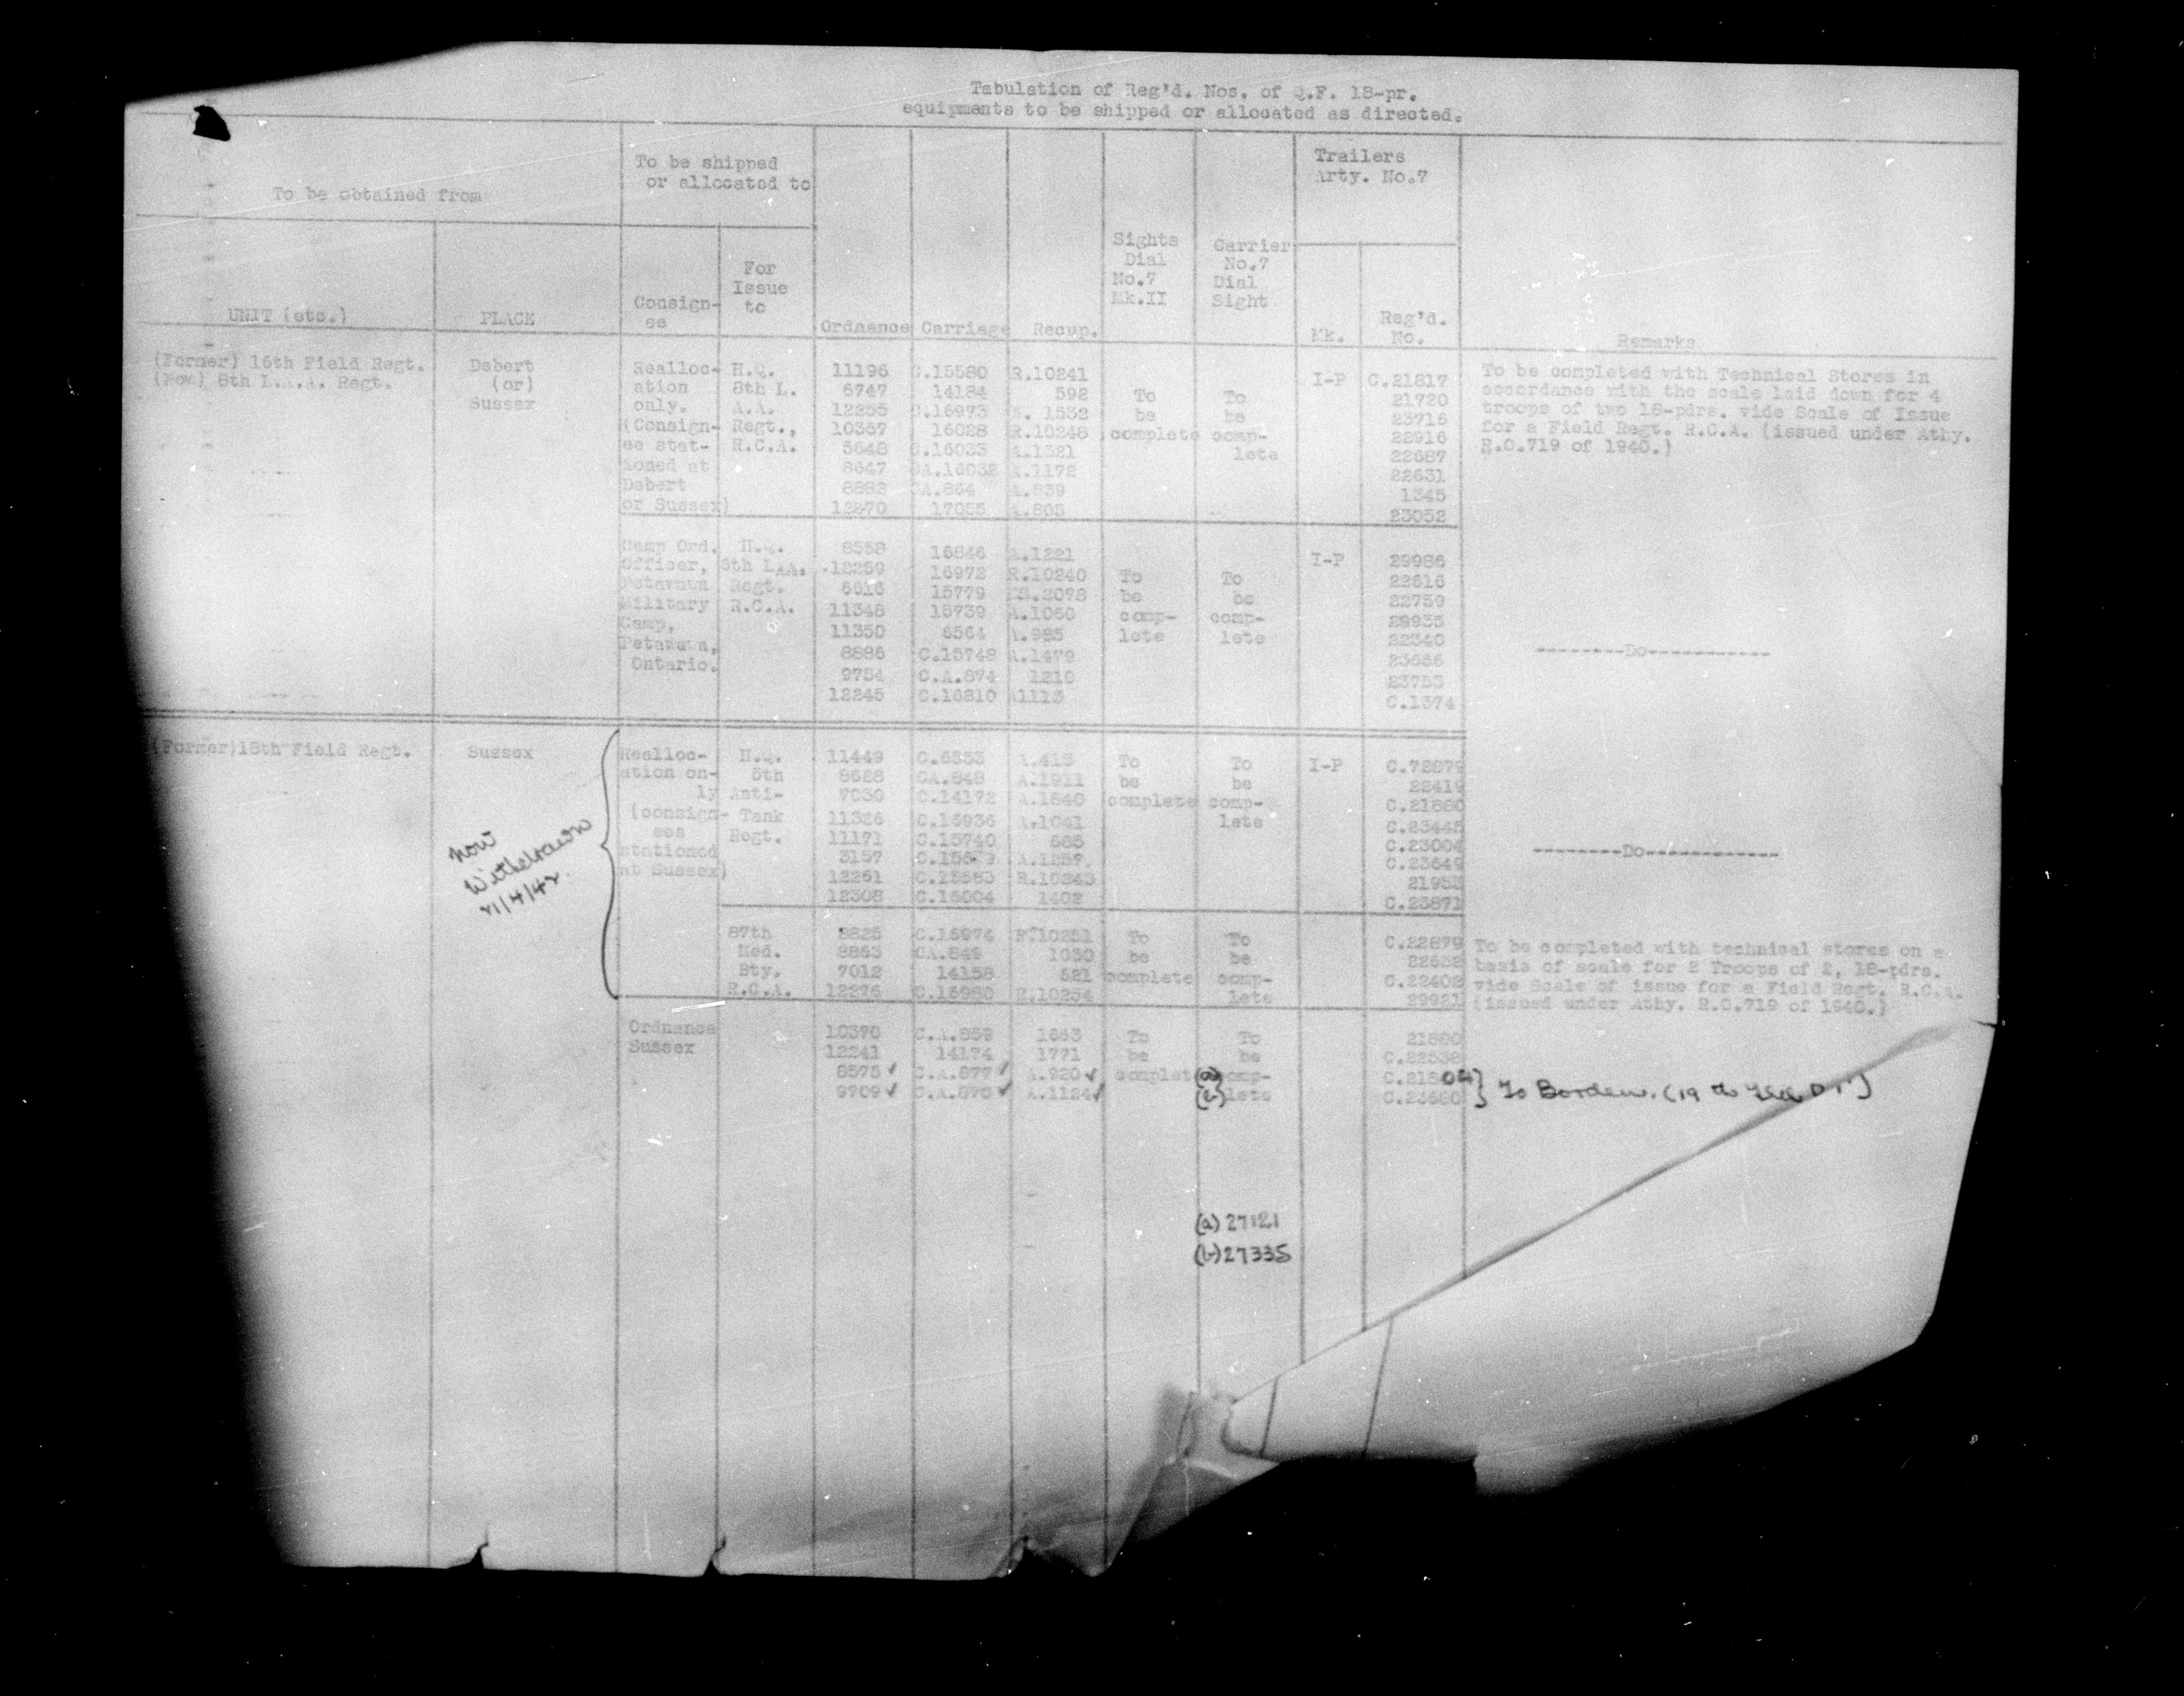 Tabulation of Reg'd. Nos. of Q.F. 18-pr.
equipments to be shipped or allocated as directed.
To be obtained from
To be shipped
or allocated to
Trailers
Arty. No.7
UNIT (etc.)
PLACE
Consign-
ee
For
Issue
to
Ordnance
Carriage
Recup.
Sights
Dial
No.7
Mk.II
Carrier
No.7
Dial
Sight
Mk.
Reg'd.
No.
Remarks
(Former) 16th Field Regt.
(Now) 8th L.A.A. Regt.
Debert
(or)
Sussex
Realloc-
ation
only.
(Consign-
ee stat-
ioned at
Debert
or Sussex)
H.Q.
8th L.
A.A.
Regt.,
R.C.A.
11196 C.15580 R.10241
6747 14184 592
12255 C.16973 1532
10357 16028 R.10248
5648 C.16033 A.1321
8647 CA.16032 A.1172
8882 CA.864 A.839
12270 17055 A.805
To
be
complete
To
be
comp-
lete
I-P
C.21817
21720
23716
22916
22687
22631
1345
23052
To be completed with Technical Stores in
accordance with the scale laid down for 4
troops of two 18-pdrs. vide Scale of Issue
for a Field Regt. R.C.A. (issued under Athy.
R.O.719 of 1940.)
Camp Ord.
Officer,
Petawawa
Military
Camp,
Petawawa,
Ontario.
H.Q.
6th L.A.A.
Regt.
R.C.A.
8558 16846 A.1221
12259 16972 R.10240
6616 15779 2078
11348 15739 A.1060
11350 6564 A.985
8886 C.15748 A.1479
9754 C.A.874 1210
12245 C.16810 1113
To
be
comp-
lete
To
be
comp-
lete
I-P
29986
22616
22759
29935
22340
23666
23753
C.1374
--------Do-----------
(Former)18th Field Regt.
Sussex
now
Withdrawn
21/4/42
Realloc-
ation on-
ly
(consign-
ees
stationed
at Sussex)
H.Q.
5th
Anti-
Tank
Regt.
11449 C.6853 A.413
8628 CA.848 A.1911
7030 C.14172 A.1840
11326 C.16936 A.1041
11171 C.15740 585
3157 A.1257
12261 R.10243
12308 C.16004 1402
To
be
complete
To
be
comp-
lete
I-P
C.72879
22419
C.21880
C.23445
C.23004
C.23649
21953
C.23871
--------Do------------
87th
Med.
Bty.
R.C.A.
8825 C.16974 R.10251
8863 CA.849 1030
7012 14158 521
12276 C.15980 R.10254
To
be
complete
To
be
comp-
lete
C.22879
22632
C.22402
29921
To be completed with technical stores on a
basis of scale for 2 Troops of 2, 18-pdrs.
vide Scale of issue for a Field Regt. R.C.A.
(issued under Athy. R.O.719 of 1940.)
Ordnance
Sussex
10370 C.A.859 1663
12241 14174 1771
8575 ✓ C.A.877 ✓ A.920 ✓
9709 ✓ C.A.870 ✓ A.1124 ✓
To
be
complete
To
be
(a) comp-
(b) lete
21880
C.22538
C.23680
} To Borden. (19th Fld
(a) 27121
(b) 27335